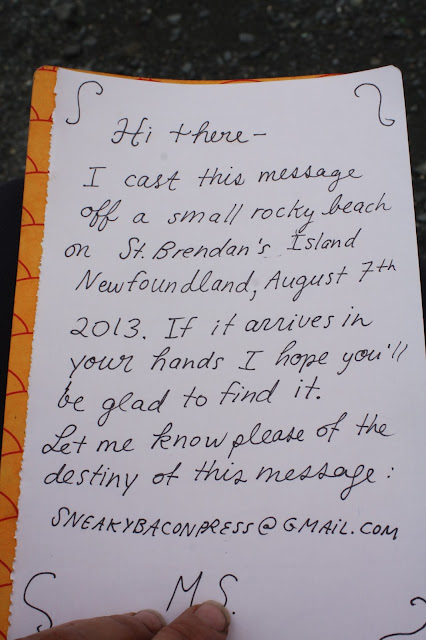 Hi there-
I cast this message
off a small rocky beach
on St. Brendan's Island
Newfoundland, August 7th
2013. If it arrives in
your hands I hope you'll
be glad to find it.
Let me know please of the
destiny of this message:
SNEAKYBACONPRESS@GMAIL.COM
M S.